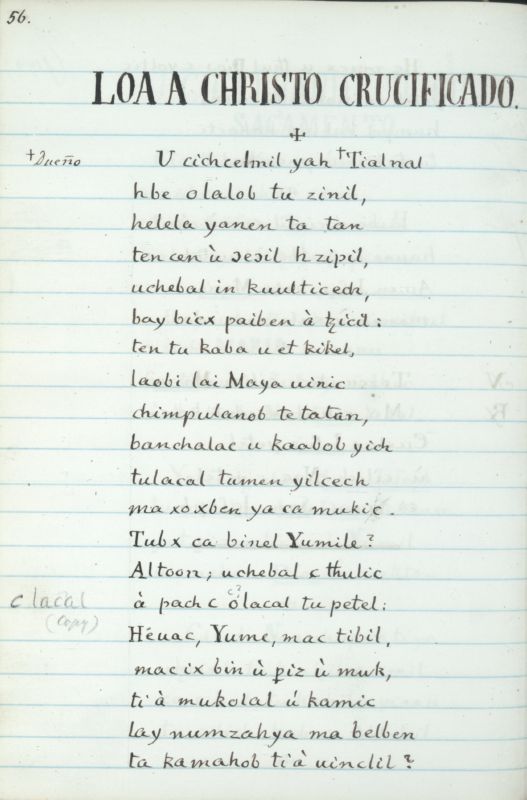 56.
LOA A CHRISTO CRUCIFICADO.
✢
†Dueño
U cichcelmil yah †Tialnal
hbe olalob tu zinil,
helela yanen ta tan
ten cen ù ɔeɔil h zipil,
uchebal in kuulticech,
bay bicx paiben à tzicil:
ten tu kaba u et kikel,
laobi lai Maya uinic
chimpulanob te tatan,
banchalac u kaabob yich
tulacal tumen yilcech
ma xoxben ya ca mukic.
Tubx ca binel Yumile?
Altoon; uchebal c thulic
c?
à pach c ólacal tu petel:
c lacal
(copy)
Héuac, Yume, mac tibil,
mac ix bin ù ppiz ù muk,
ti à mukolal ú kamic
lay numzahya ma belben
ta kamahob ti à uinclil?